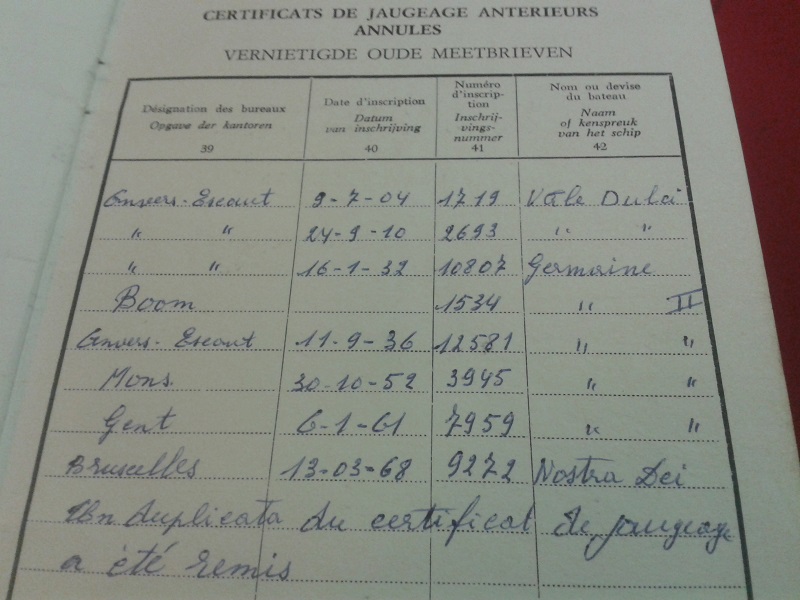 CERTIFICATS DE JAUGEAGE ANTERIEURS
ANNULES
VERNIETIGDE OUDE MEETBRIEVEN
Désignation des bureaux
Opgave der kantoren
39
Date d'inscription
Datum
van inschrijving
40
Numéro
d'inscrip-
tion
Inschrij-
vings-
nummer
41
Nom ou devise
du bateau
Naam
of kenspreuk
van het schip
42
Anvers-Escaut 9-7-04 1719
" " 24-9-10 2693 " "
" " 16-1-32 10807 Germaine
Boom 1534 " II
Anvers-Escaut 11-9-36 12581 " "
Mons 30-10-52 3945 " "
Gent 6-1-61 7959 " "
Bruxelles 13-03-68 9272 Nostra Dei
Un duplicata du certificat de jaugeage
a été remis